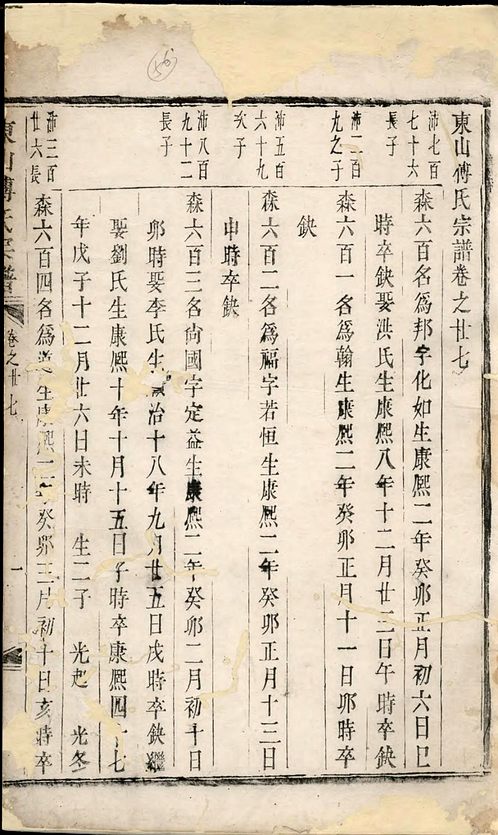 東山傅氏宗譜卷之廿七
沛七百
七十六
長子
森六百名為邦字化如生康熙二年癸卯正月初六日巳
時卒缺娶洪氏生康熙八年十二月廿二日午時卒缺
沛二百
九之子
森六百一名為翰生康熙二年癸卯正月十一日卯時卒
缺
沛五百
六十九
次子
森六百二名為福字若恒生康熙二年癸卯正月十三日
申時卒缺
沛八百
九十二
長子
森六百三名尚國字定益生康熙二年癸卯二月初十日
卯時娶李氏生治十八年九月廿五日戌時卒缺繼
娶劉氏生康熙十年十月十五日子時卒康熙四十七
年戊子十二月廿六日未時 生二子 光起 光冬
沛三百
廿六長
森六百四名為道生康熙二年癸卯三月初十日亥時卒
東山傅氏宗譜
卷之廿七
一
56